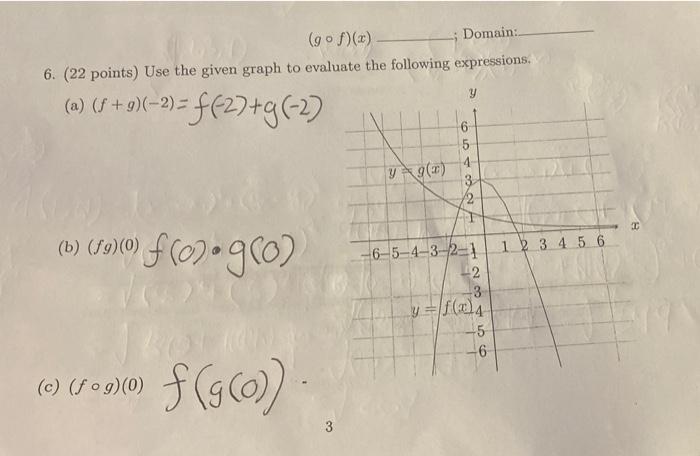 (g ∘ f)(x) ________; Domain:________
6. (22 points) Use the given graph to evaluate the following expressions.
(a) (f + g)(−2) = f(-2)+g(-2)
y
6
5
4
y = g(x)
3
2
1
x
(b) (fg)(0) f(0)•g(0)
-6-5-4-3-2-1 1 2 3 4 5 6
-2
-3
y = f(x) 4
-5
-6
(c) (f ∘ g)(0) f(g(0))
3